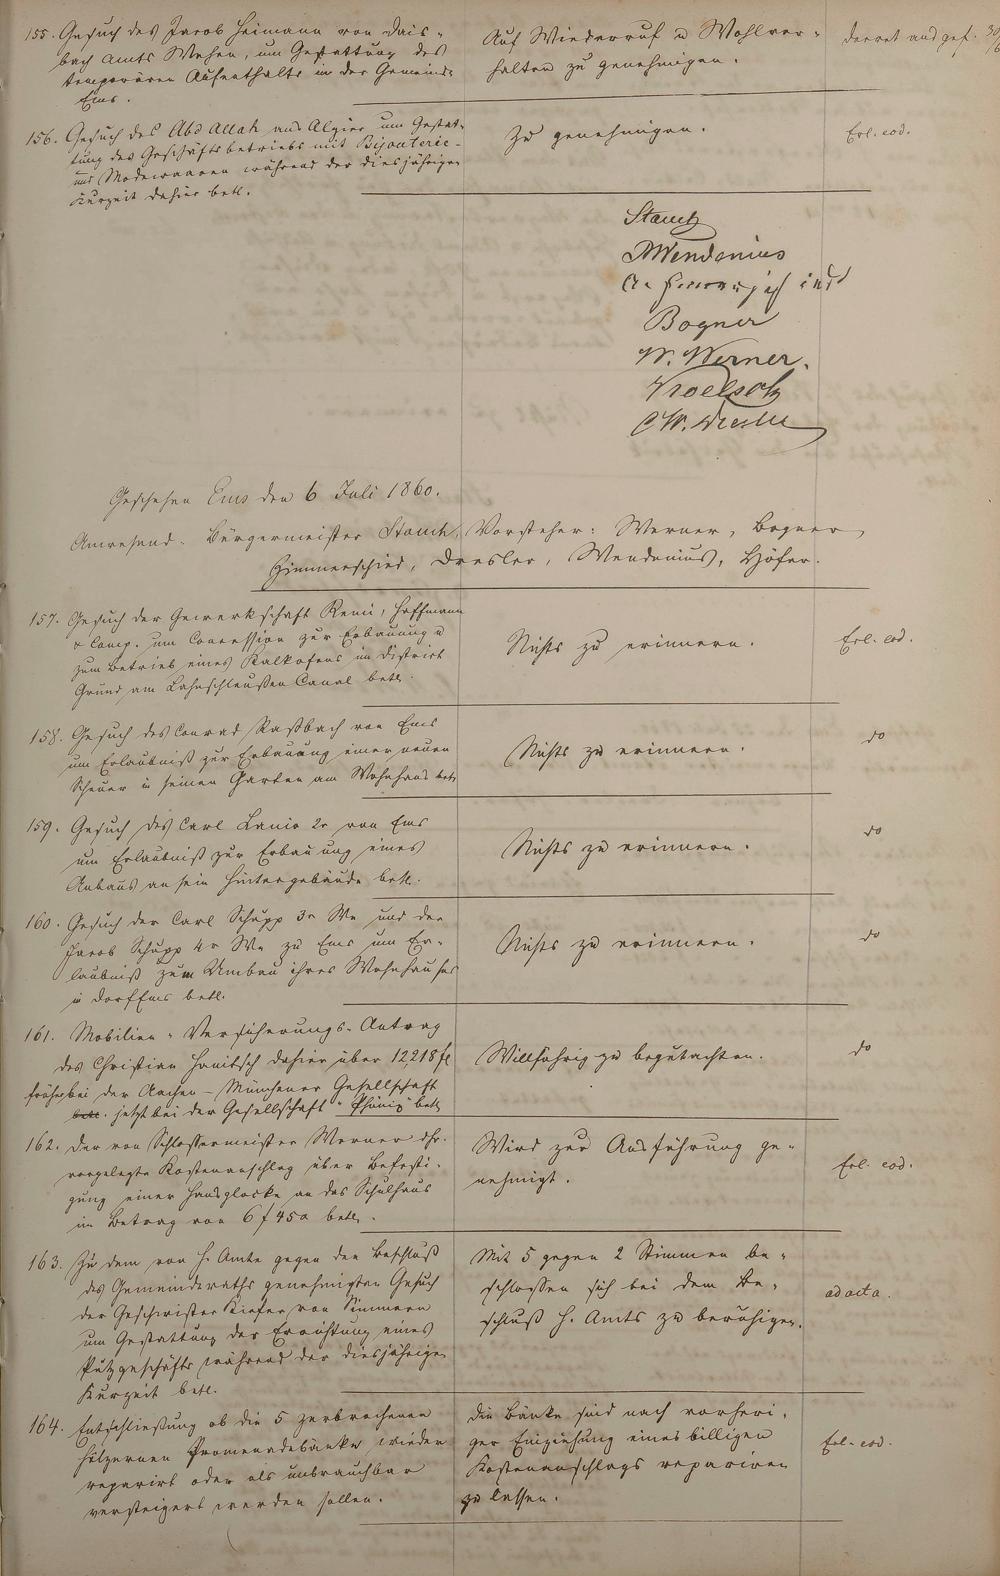 155. Gesuch des Jacob Heimann von Dais-
bach Amts Wehen, um Gestattung des
temporären Aufenthalts in der Gemeinde
Ems.
Auf Wiederruf u Wohlver-
halten zu genehmigen.
decret ausgef. 30/6
156. Gesuch des Abd Allah aus Algier um Gestat-
tung des Geschäftsbetriebs mit Bijouterie-
und Modewaaren während der diesjährigen
Kurzeit dahier betr.
Zu genehmigen.
Erl. eod.
Stamb
Wendenius
Bogner
W. Werner.
CW. Dresler
Geschehen Ems den 6 Juli 1860.
Anwesend. Bürgermeister Vorsteher: Werner, Bogner
Zimmerschied, Dresler, Wendenius, Höfer.
157. Gesuch der Gewerkschaft Remi, Hoffmann
& Comp. um Concession zur Erbauung u
zum Betrieb eines Kalkofens im District
Grund am Lahnschleußen Canal betr.
Nichts zu erinnern.
Erl. eod.
158. Gesuch des Conrad Raßbach von Ems
um Erlaubniß zur Erbauung einer neuen
Scheuer in seinen Garten am Wohnhaus betr
Nichts zu erinnern.
do
159. Gesuch des Carl Lanio 2r von Ems
um Erlaubniß zur Erbauung eines
Anbaus an sein Hintergebäude betr.
Nichts zu erinnern.
do
160. Gesuch der Carl Schupp 3r We und der
Jacob Schupp 4r We zu Ems um Er-
laubniß zum Umbau ihres Wohnhauses
in Dorf Ems betr.
Nichts zu erinnern.
do
161. Mobilien-Versicherungs-Antrag
des Christian Hanitsch dahier über 12,218 fl
früher bei der Aachen-Münchener Gesellschaft
betr. jetzt bei der Gesellschaft "Phönix" betr
Willfährig zu begutachten.
do
162. Der von Schlossermeister Werner dhr.
vorgelegte Kostenanschlag über Befesti-
gung einer Hausglocke an das Schulhaus
im Betrag von 6 f 45 x betr.
Wird zur Ausführung ge-
nehmigt.
Erl. eod.
163. Zu dem von H. Amte gegen den Beschluß
des Gemeinderaths genehmigten Gesuch
der Geschwister Kiefer von Simmern
um Gestattung der Errichtung eines
Putzgeschäfts während der diesjährigen
Kurzeit betr.
Mit 5 gegen 2 Stimmen be-
schlossen sich bei dem Be-
schluß H. Amts zu beruhigen.
ad acta.
164. Entschließung ob die 5 zerbrochenen
hölzernen Promenadebänke wieder
reparirt oder als unbrauchbar
versteigert werden sollen.
Die Bänke sind nach vorheri-
ger Einziehung eines billigen
Kostenanschlags repariren
zu lassen.
Erl. eod.